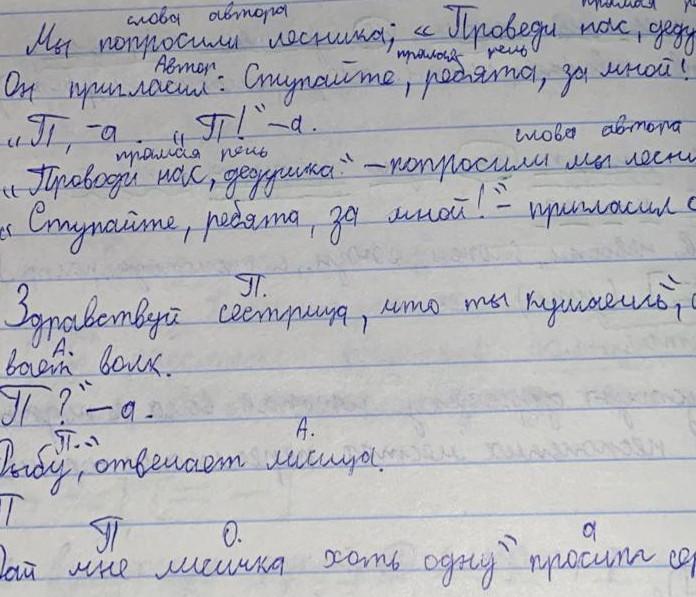 слова автора прямая
Мы попросили лесника; „Проведи нас, деду
Автор прямая речь
Он пригласил: Ступайте, ребята, за мной!
„П, –а. „П!“ –а.
прямая речь слова автора
„Проводи нас, дедушка.“ – попросили мы лесни
„Ступайте, ребята, за мной!“ – пригласил
П.
Здравствуй сестрица, что ты кушаешь“,
А.
вает волк.
П?“ – а.
П. А.
Рыбу,“ отвечает лисица.
П
П О. а
Дай мне лисичка хоть одну“ просит сер